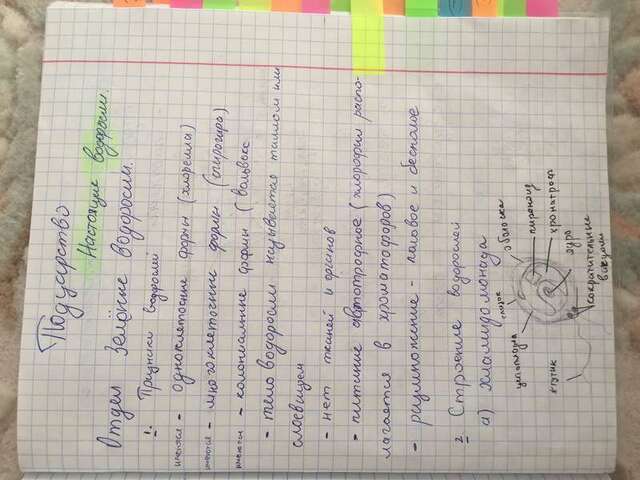 Подцарство
Настоящие водоросли.
Отдел Зелёные водоросли.
1. Признаки водорослей
имеются - одноклеточные формы (хлорелла)
имеются - многоклеточные формы (спирогира)
имеются - колониальные формы (вольвокс
- тело водоросли называется таллом или
слоевищем
- нет тканей и органов
- питание автотрофное (хлорофил распо-
лагается в хроматофоров)
- размножение - половое и бесполое
2 Строение водорослей
а) хламидомонада
глазок
оболочка
цитоплазма
пиреноид
хроматофор
жгутик
ядро
сократительные
вакуоли